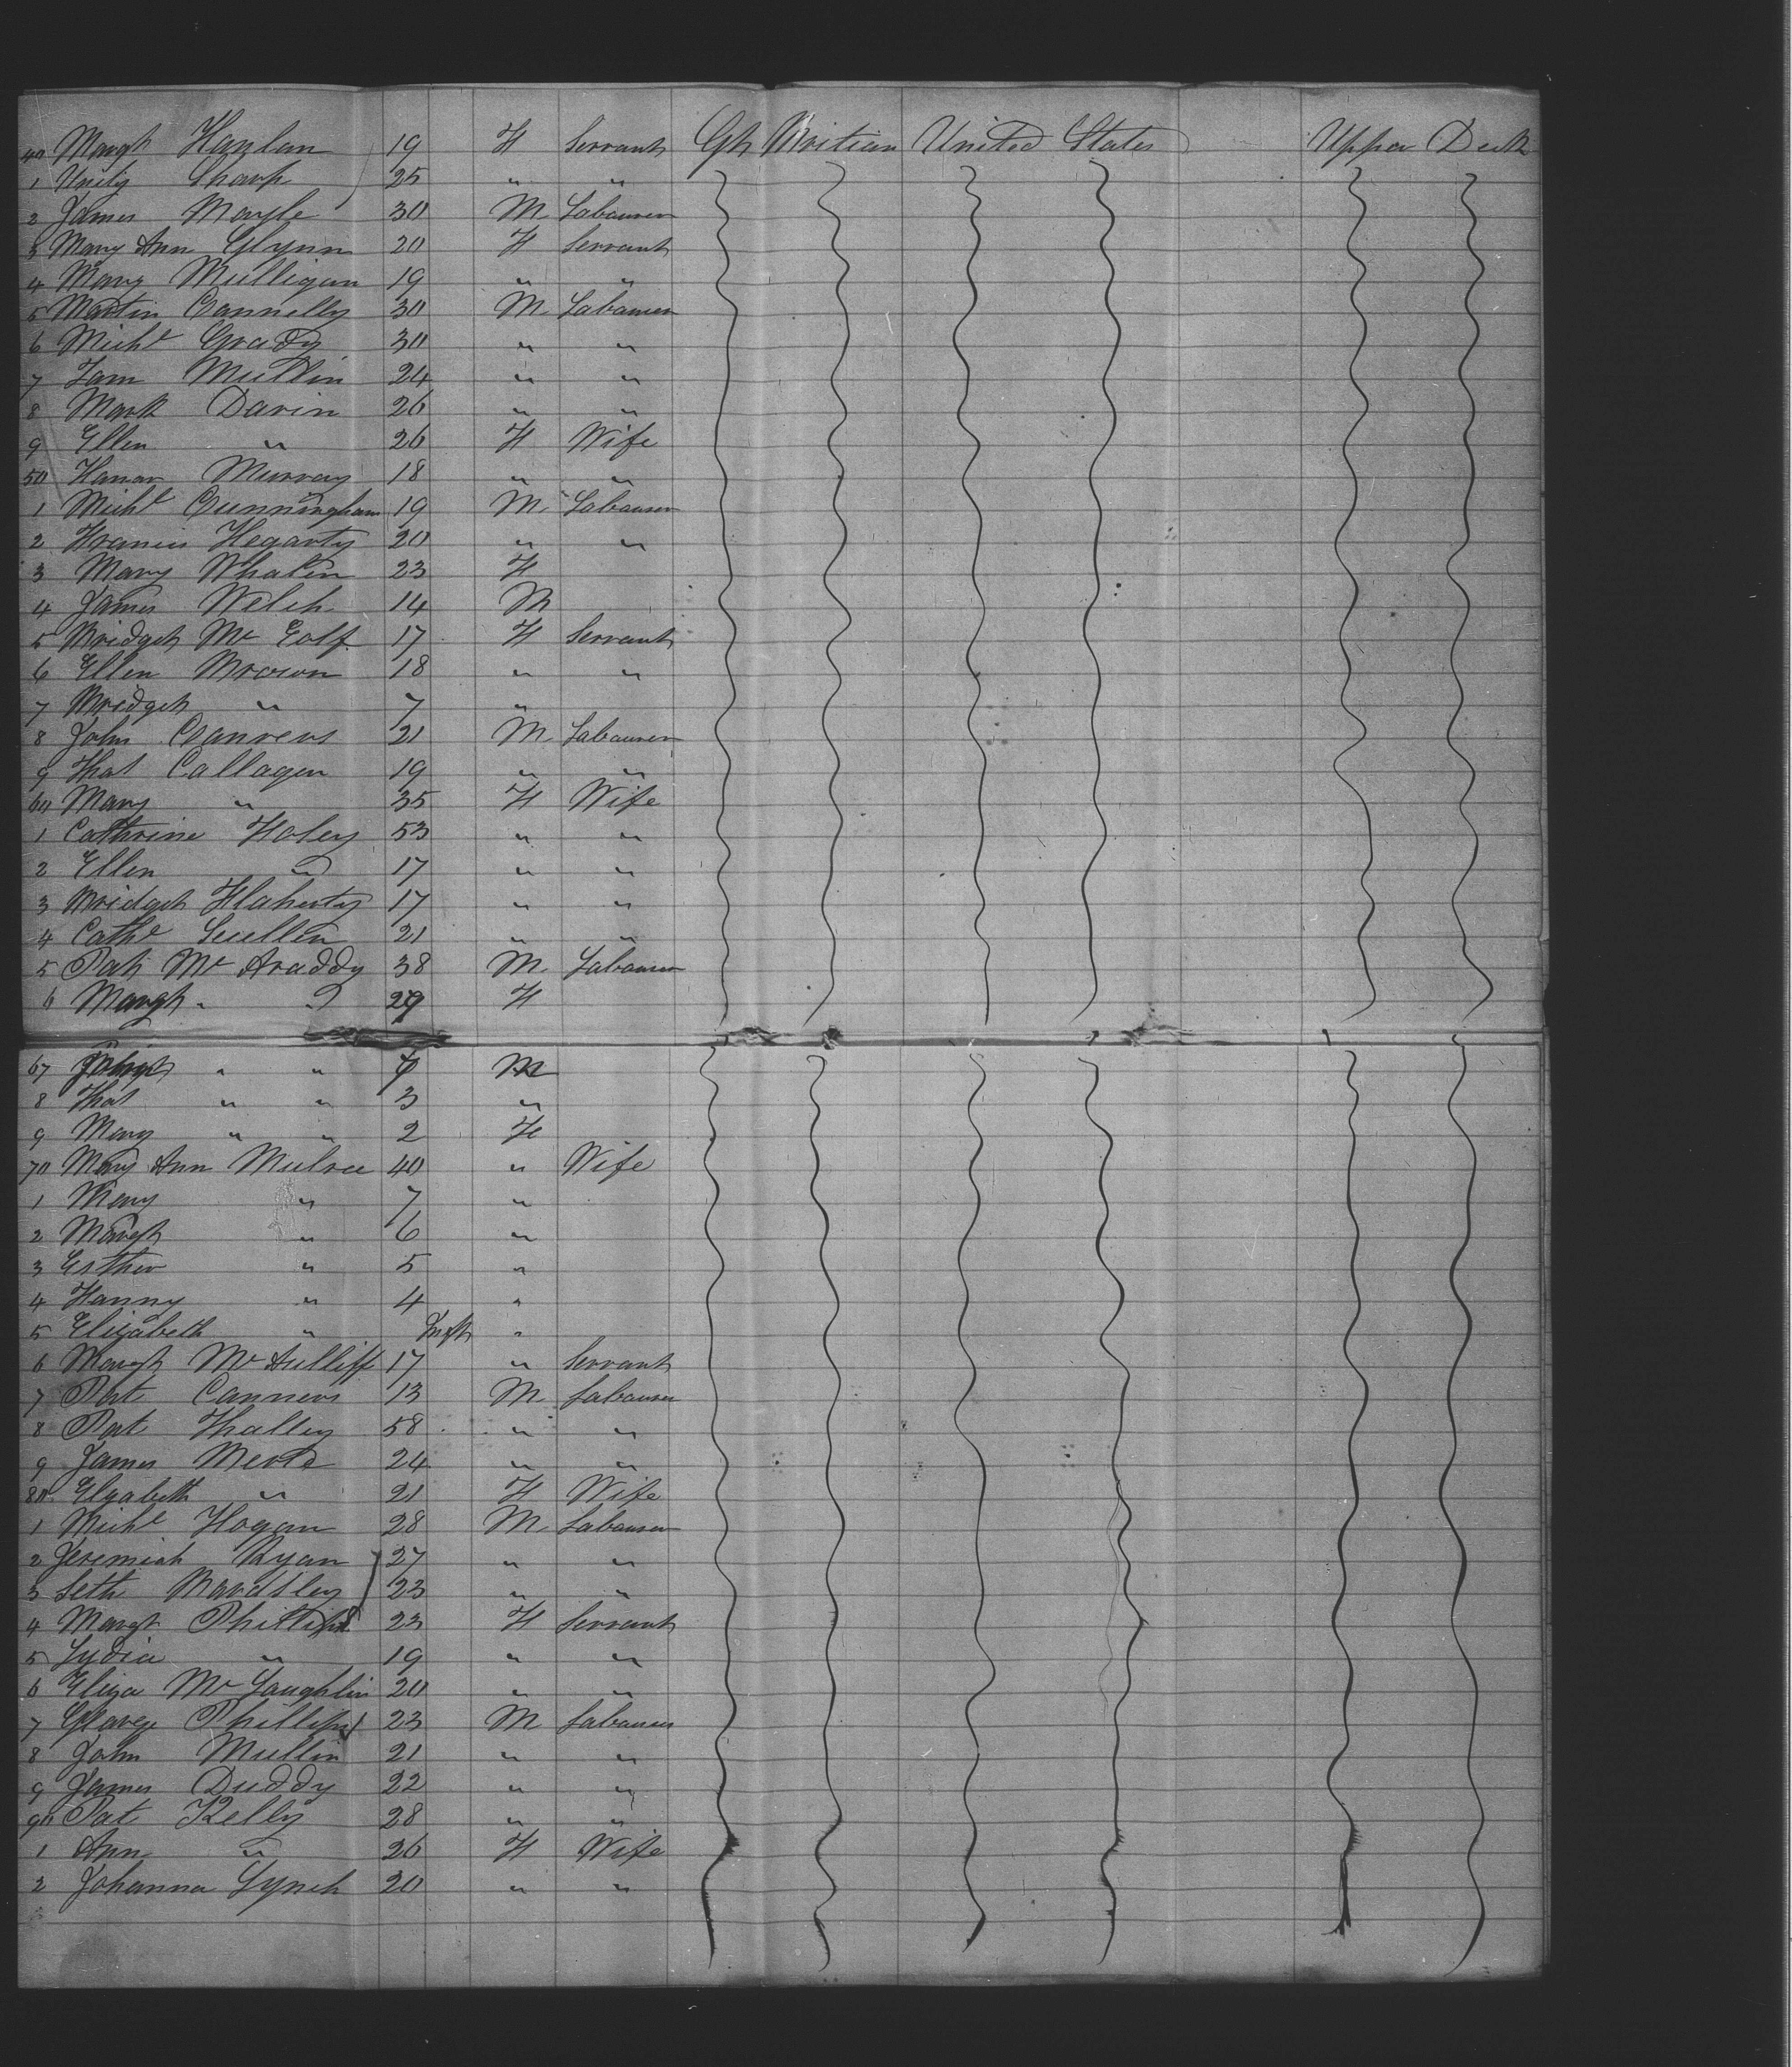 40 Margt Hanlan 19 F Servant Gt Britian United States Upper Deck
1 Unity Sharp 25 " "
2 James Moyle 30 M Labourer
3 Mary Ann Glynn 20 F Servant
4 Mary Mulligan 19 " "
5 Martin Connelly 30 M Labourer
6 Michl Grady 30 " "
7 Tam Mullin 24 " "
8 Mark Davin 26 " "
9 Ellen " 26 F Wife
50 Hanar Murray 18 " "
1 Michl Cunningham 19 M Labourer
2 Francis Hegarty 20 " "
3 Mary Whalin 23 F
4 James Welch 14 M
5 Bridget Mc 17 F Servant
6 Ellen Brown 18 " "
7 Bridget " 7 "
8 John 21 M Labourer
9 Thos Callagen 19 " "
60 Mary " 35 F Wife
1 Cathrine Foley 53 " "
2 Ellen " 17 " "
3 Bridget Flaherty 17 " "
4 Cathe Scullin 21 " "
5 Pat Mc Araddy 38 M Labourer
6 Margt " " 29 F
67 " " M
8 Thos " " 3 "
9 Mary " " 2 F
70 Mary Ann Mulree 40 " Wife
1 Mary " 7 "
2 Margt " 6 "
3 Esther " 5 "
4 Fanny " 4 "
5 Elizabeth " Inft "
6 Margt Mc Aulliff 17 " Servant
7 Pat Canners 13 M Labourer
8 Pat Thalley 58 " "
9 James 24 " "
80 Elizabeth " 21 F Wife
1 Michl Hogan 28 M Labourer
2 Jeremiah Ryan 27 " "
3 Seth Bardsley 23 " "
4 Margt Phillips 23 F Servant
5 Lydia " 19 " "
6 Eliza Mc Laughlin 20 " "
7 George Phillips 23 M Labourer
8 John Mullin 21 " "
9 James Duddy 22 " "
90 Pat Kelly 28 " "
1 Ann " 26 F Wife
2 Johanna Lynch 20 " "